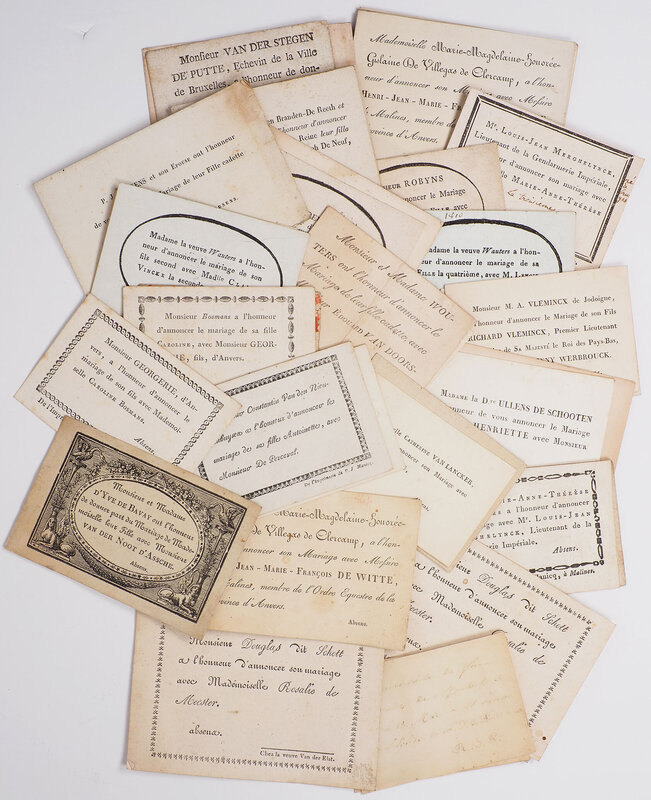 Monsieur VAN DER STEGEN
DE PUTTE, Echevin de la Ville
de Bruxelles, l'honneur de don-
Mademoiselle Marie-Magdelaine-Honorée-
Gislaine De Villegas de Clercamp, a l'hon-
neur d'annoncer son Mariage avec Messire
HENRI-JEAN-MARIE-F
de Malines, membre de
Province d'Anvers.
en Branden-De Reeth et
l'honneur d'annoncer
Reine leur fille
h De Neuf,
Mr. LOUIS-JEAN MERGHELYNCK,
Lieutenant de la Gendarmerie Impériale,
d'annoncer son mariage avec
MARIE-ANNE-THÉRÈSE
P.
ENS et son Epouse ont l'honneur
de
Mariage de leur Fille cadette
EUR ROBYNS
annoncer le Mariage
FILLE avec
1810
Madame la veuve Wauters a l'hon-
neur d'annoncer le mariage de son
fils second avec Madlle
VINCKX la second
Madame la veuve Wauters a l'hon-
neur d'annoncer le mariage de sa
FILLE la quatrième, avec M.
Monsieur et Madame WOU-
TERS ont l'honneur d'annoncer le
Mariage de leur fille cadette, avec
EDOUARD VAN DOORS-
Monsieur M. A. VLEMINCX de Jodoigne,
l'honneur d'annoncer le mariage de son Fils
RICHARD VLEMINCX, Premier Lieutenant
de SA MAJESTÉ le Roi des Pays-Bas,
NNY WERBROUCK.
Monsieur Bosmans a l'honneur
d'annoncer le mariage de sa fille
CAROLINE, avec Monsieur GEOR-
RIE, fils, d'Anvers.
Monsieur GEORGERIE, d'An-
vers, a l'honneur d'annoncer le
mariage de son fils avec Mademoi-
selle CAROLINE BOSMANS.
Absens.
De l'Impr
Constantin Van den Nieu-
wenhuysen a l'honneur d'annoncer les
mariages de ses filles Antoinettes, avec
Monsieur De Perceval.
De l'Imprimerie de P. J.
MADAME LA Dre ULLENS DE SCHOOTEN
honneur de vous annoncer le Mariage
HENRIETTE avec MONSIEUR
CATHERINE VAN LANCKER,
annoncer son Mariage avec
Monsieur et Madame
D'YVE DE BAVAY ont l'honneur
de donner part du Mariage de Made-
moiselle leur Fille avec Monsieur
VAN DER NOOT D'ASSCHE.
Absens.
ANNE-THÉRÈSE
a l'honneur d'annoncer
avec Mr. LOUIS-JEAN
HELYNCK, Lieutenant de la
rie Impériale.
Absens.
Hanicq, à Malines.
Marie-Magdelaine-Honorée-
De Villegas de Clercamp, a l'hon-
annoncer son Mariage avec Messire
JEAN-MARIE-FRANÇOIS DE WITTE,
Malines, membre de l'Ordre Equestre de la
vince d'Anvers.
Absens.
Douglas dit Schott
l'honneur d'annoncer son mariage
Mademoiselle Rosalie de
Monsieur Douglas dit Schott
a l'honneur d'annoncer son mariage
avec Mademoiselle Rosalie de
Meester.
absens.
Chez la veuve Van der Elst.